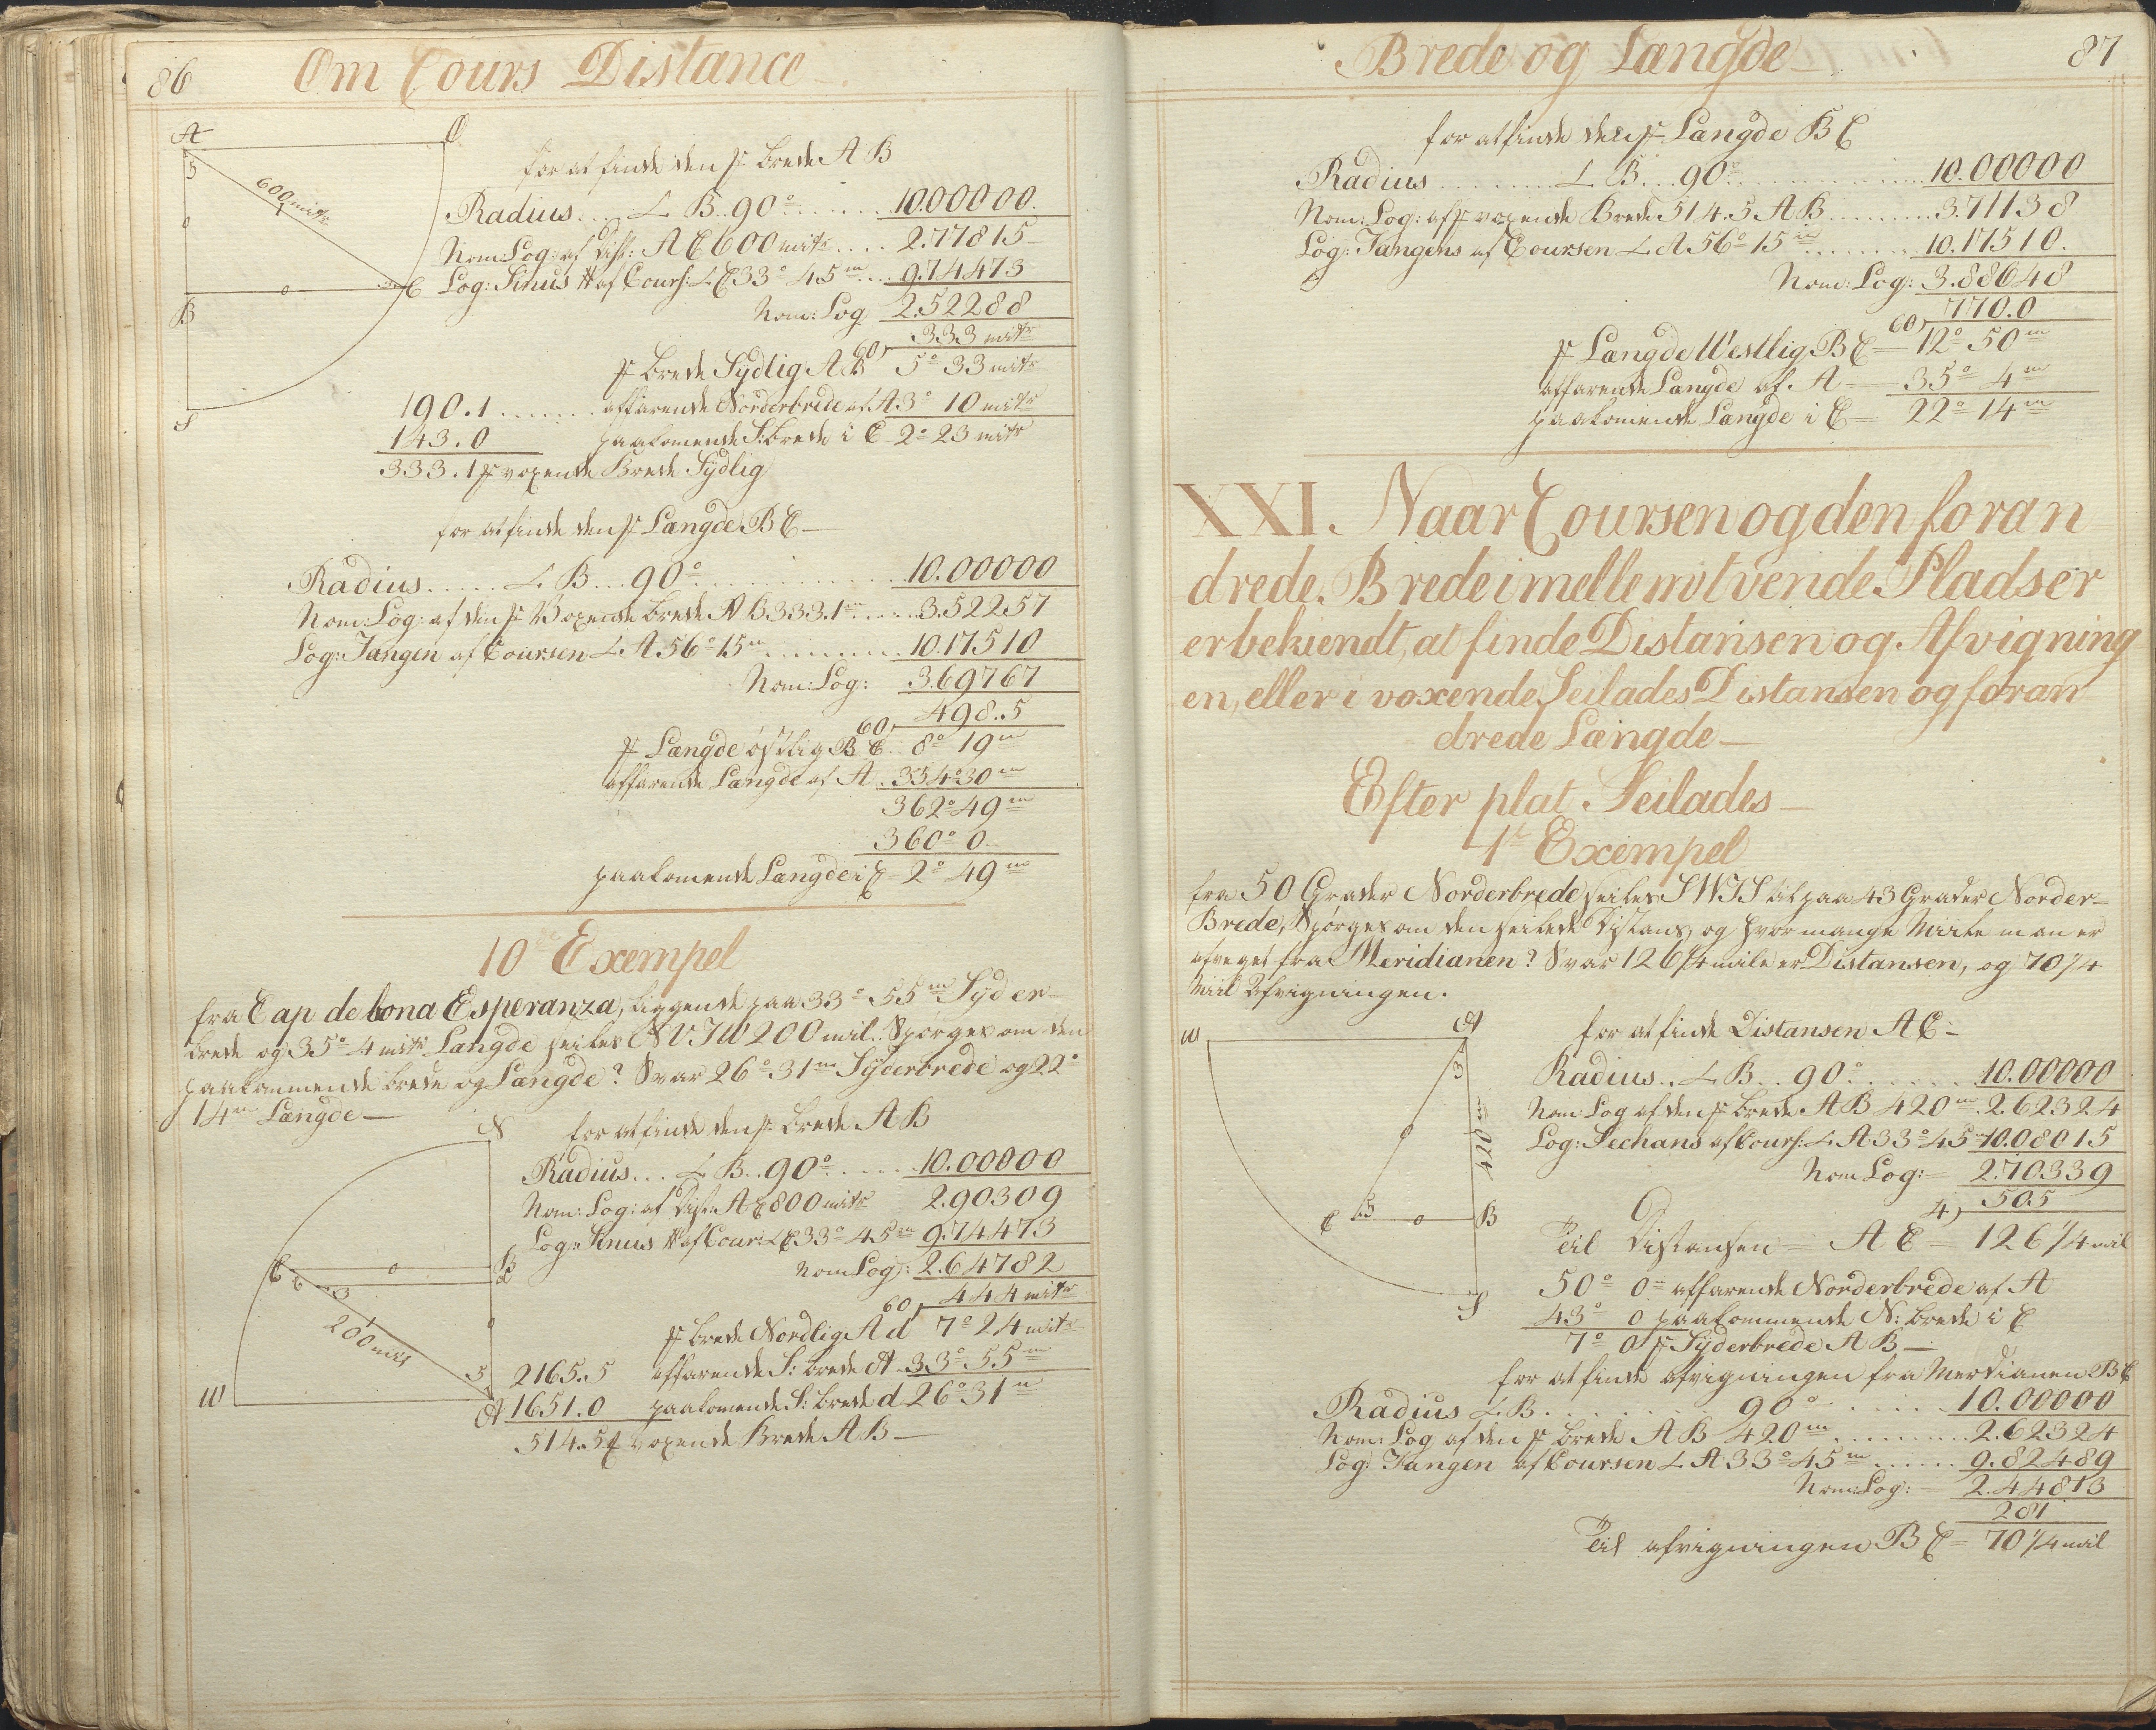 86
Om Cours Distance
A
O
600 mitr
for at finde den fr Brede AB
Radius.... L B..90°...... 10.00000.
Nom: Log: af Dist: AC 600 mitr.... 2.77815
Log: Sinus af Cours: L C 33° 45 m... 9.74473
Nom: Log 2.52288
333 mitr
60
fr Brede Sydlig AB 5° 33 mitr
190.1....... affarende Norderbrede af A 3° 10 mitr
143.0 paakomende S: Brede i C 2° 23 mitr
333.1 fr voxende Brede Sydlig
B
C
S
for at finde den fr Længde BC
Radius..... L B...90°.............. 10.00000
Nom: Log: af den fr Voxende Brede AB 333.1 m.... 3.52257
Log: Tangen af Coursen L A 56° 15 m......... 10.17510
Nom: Log: 3.69767
498..5
60
fr Længde östlig BC 8° 19 m
affarende Længde af A 354° 30 m
362° 49 m
360° 0
paakomende Længde i C 2° 49 m
10de Exempel
fra Cap de bona Esperanza, liggende paa 33° 55 m Syder
brede og 35° 4 mitr Længde seiles NVTW 200 mil. Spørges om den
paakommende Brede og Længde? Svar 26° 31 m Syderbrede og 22°
14 m Længde
N
C
B
d
200 mil
W
A
for at finde den fr Brede AB
Radius... L B..90°..... 10.00000
Nom: Log: af Dist: AC 800 mitr 2.90309
Log: Sinus af Cour: L C 33° 45 m 9.74473
Nom Log: 2.64782
444 mitr
60
fr Brede Nordlig Ad 7° 24 mitr
2165.5 affarende S: Brede A 33° 55 m
1651.0 paakomende S: Brede d 26° 31 m
514.5 fr voxende Brede AB
Brede og Længde
87
for at finde den fr Længde BC
Radius......... L B...90°............... 10.00000
Nom: Log: af fr voxende Brede 514.5 AB......... 3.71138
Log: Tangens af Coursen L A 56° 15 m........ 10.17510.
Nom: Log: 3.88648
770.0
60
fr Længde Westlig BC = 12° 50 m
affarende Længde af A = 35° 4 m
paakomende Længde i C = 22° 14 m
XXI. Naar Coursen og den foran
drede Brede imellem tvende Pladser
er bekiendt, at finde Distansen og Afvigning
en, eller i voxende Seilades Distansen og foran
drede Længde
Efter plat Seilades
1te Exempel
fra 50 Grader Norderbrede seiles SWTS til paa 43 Grader Norder=
Brede, Spørges om den seilede Distans, og hvor mange Miile man er
afveget fra Meridianen? Svar 126 1/4 mile er Distansen, og 70 1/4
Miil Afvigningen.
W
A
420 m
C
B
S
for at finde Distansen AC
Radius.. L B.. 90°....... 10.00000
Nom Log af den fr Brede AB 420 m. 2.62324
Log: Sechans af Cours: L A 33° 45 m 10.08015
Nom Log: = 2.70339
505
4
Til Distansen = AC = 126 1/4 mil
50° 0 m affarende Norderbrede af A
43° 0 paakommende N: Brede i C
7° 0 fr Syderbrede AB
for at finde afvigningen fra Merdianen BC
Radius L B......... 90°....... 10.00000
Nom: Log af den fr Brede AB 420 m.......... 2.62324
Log: Tangen af Coursen L A 33° 45 m...... 9.82489
Nom: Log: = 2.44813
281
Til afvigningen BC = 70 1/4 mil